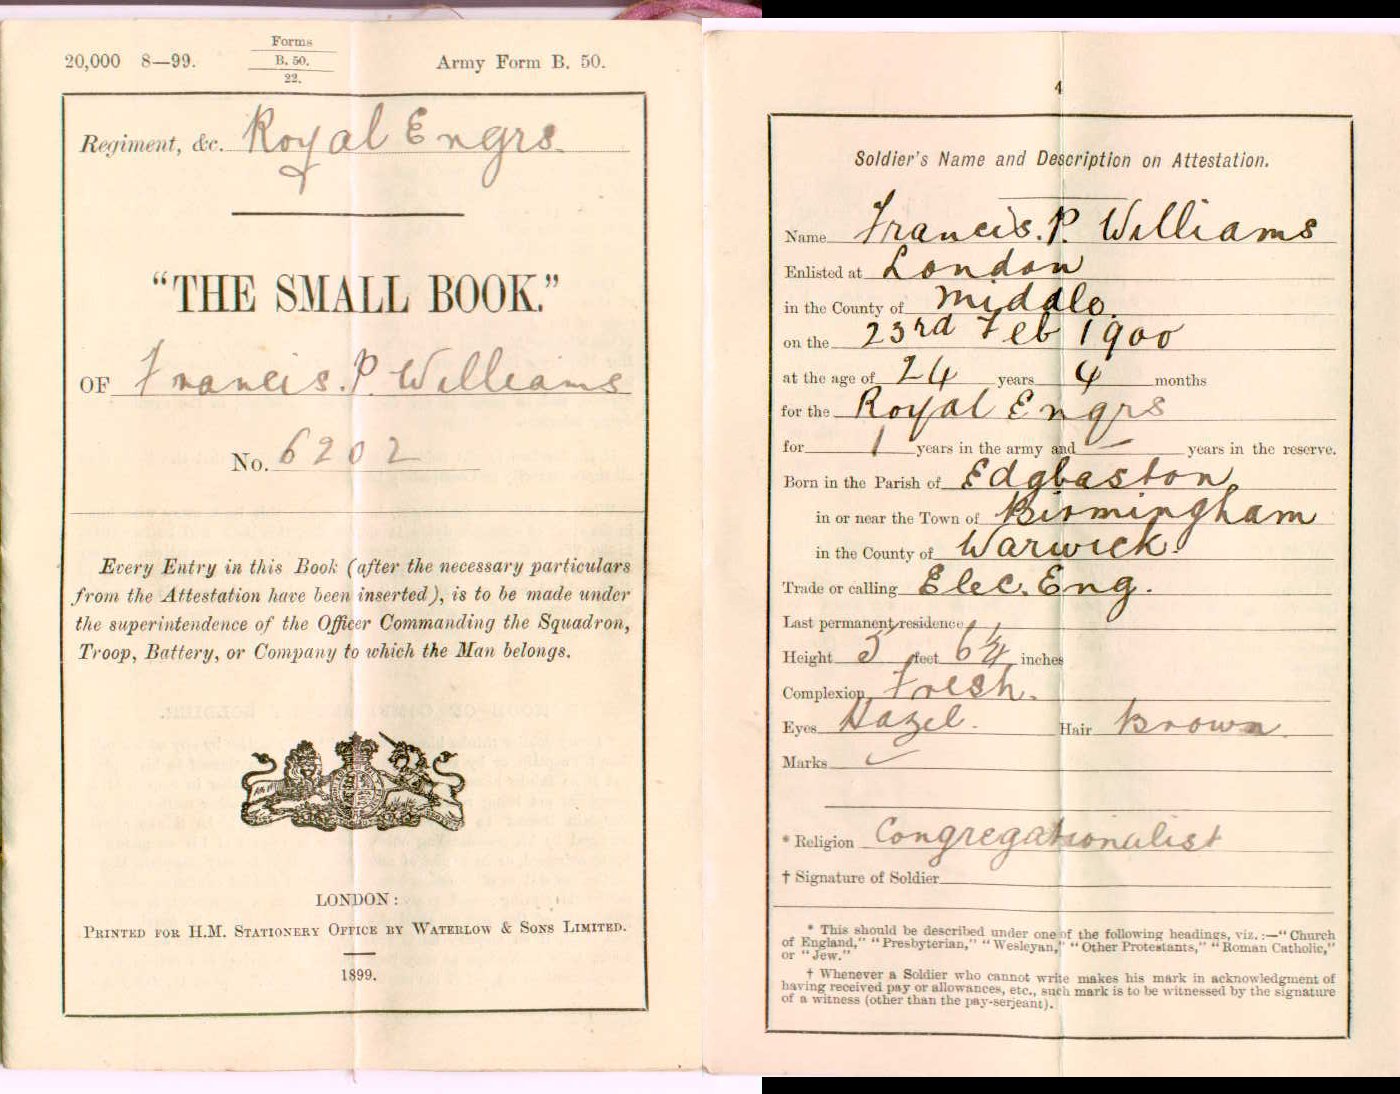 20,000 8—99. Forms B. 50. 22. Army Form B. 50.
Regiment, &c. Royal Engrs.
"THE SMALL BOOK."
OF Francis. P. Williams
No. 6202
Every Entry in this Book (after the necessary particulars
from the Attestation have been inserted), is to be made under
the superintendence of the Officer Commanding the Squadron,
Troop, Battery, or Company to which the Man belongs.
LONDON:
PRINTED FOR H.M. STATIONERY OFFICE BY WATERLOW & SONS LIMITED.
1899.
4
Soldier's Name and Description on Attestation.
Name Francis. P. Williams
Enlisted at London
in the County of Middlx.
on the 23rd Feb 1900
at the age of 24 years 4 months
for the Royal Engrs
for 1 years in the army and — years in the reserve.
Born in the Parish of Edgbaston
in or near the Town of Birmingham
in the County of Warwick.
Trade or calling Elec. Eng.
Last permanent residence
Height 5 feet 6 inches
Complexion Fresh.
Eyes Hazel. Hair Brown.
Marks
* Religion Congregationalist
† Signature of Soldier
* This should be described under one of the following headings, viz.:—"Church
of England," "Presbyterian," "Wesleyan," "Other Protestants," "Roman Catholic,"
or "Jew."
† Whenever a Soldier who cannot write makes his mark in acknowledgment of
having received pay or allowances, etc., such mark is to be witnessed by the signature
of a witness (other than the pay-serjeant).